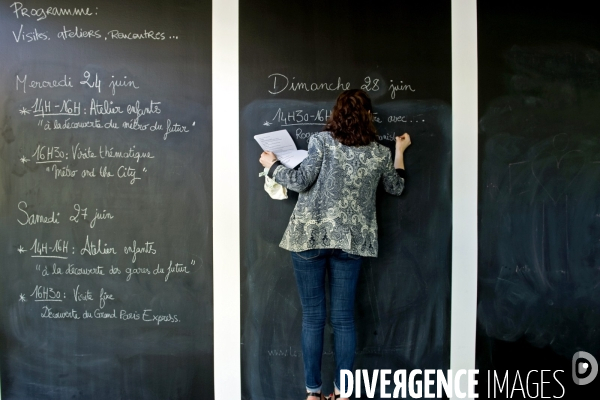 Programme:
Visites, ateliers, rencontres...
Mercredi 24 juin
* 14H-16H: Atelier enfants
"à la découverte du métro du futur"
* 16H30: Visite thématique
"Métro and the City"
Samedi 27 juin
* 14H-16H: Atelier enfants
"à la découverte des gares du futur"
* 16H30: Visite fixe
Découverte du Grand Paris Express.
Dimanche 28 juin
* 14H30-16H avec...
DIVERGENCE IMAGES